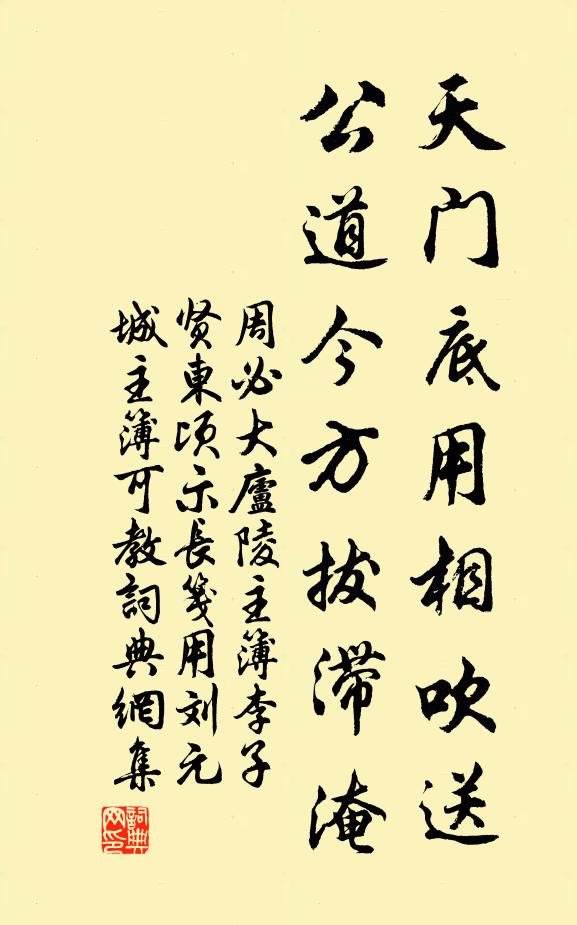 天门底用相吹送
公道今方拔滞淹
周必大廬陵主簿李子
贤東顷示長箋用刘元
城主簿可教詞典網集
詞典网印